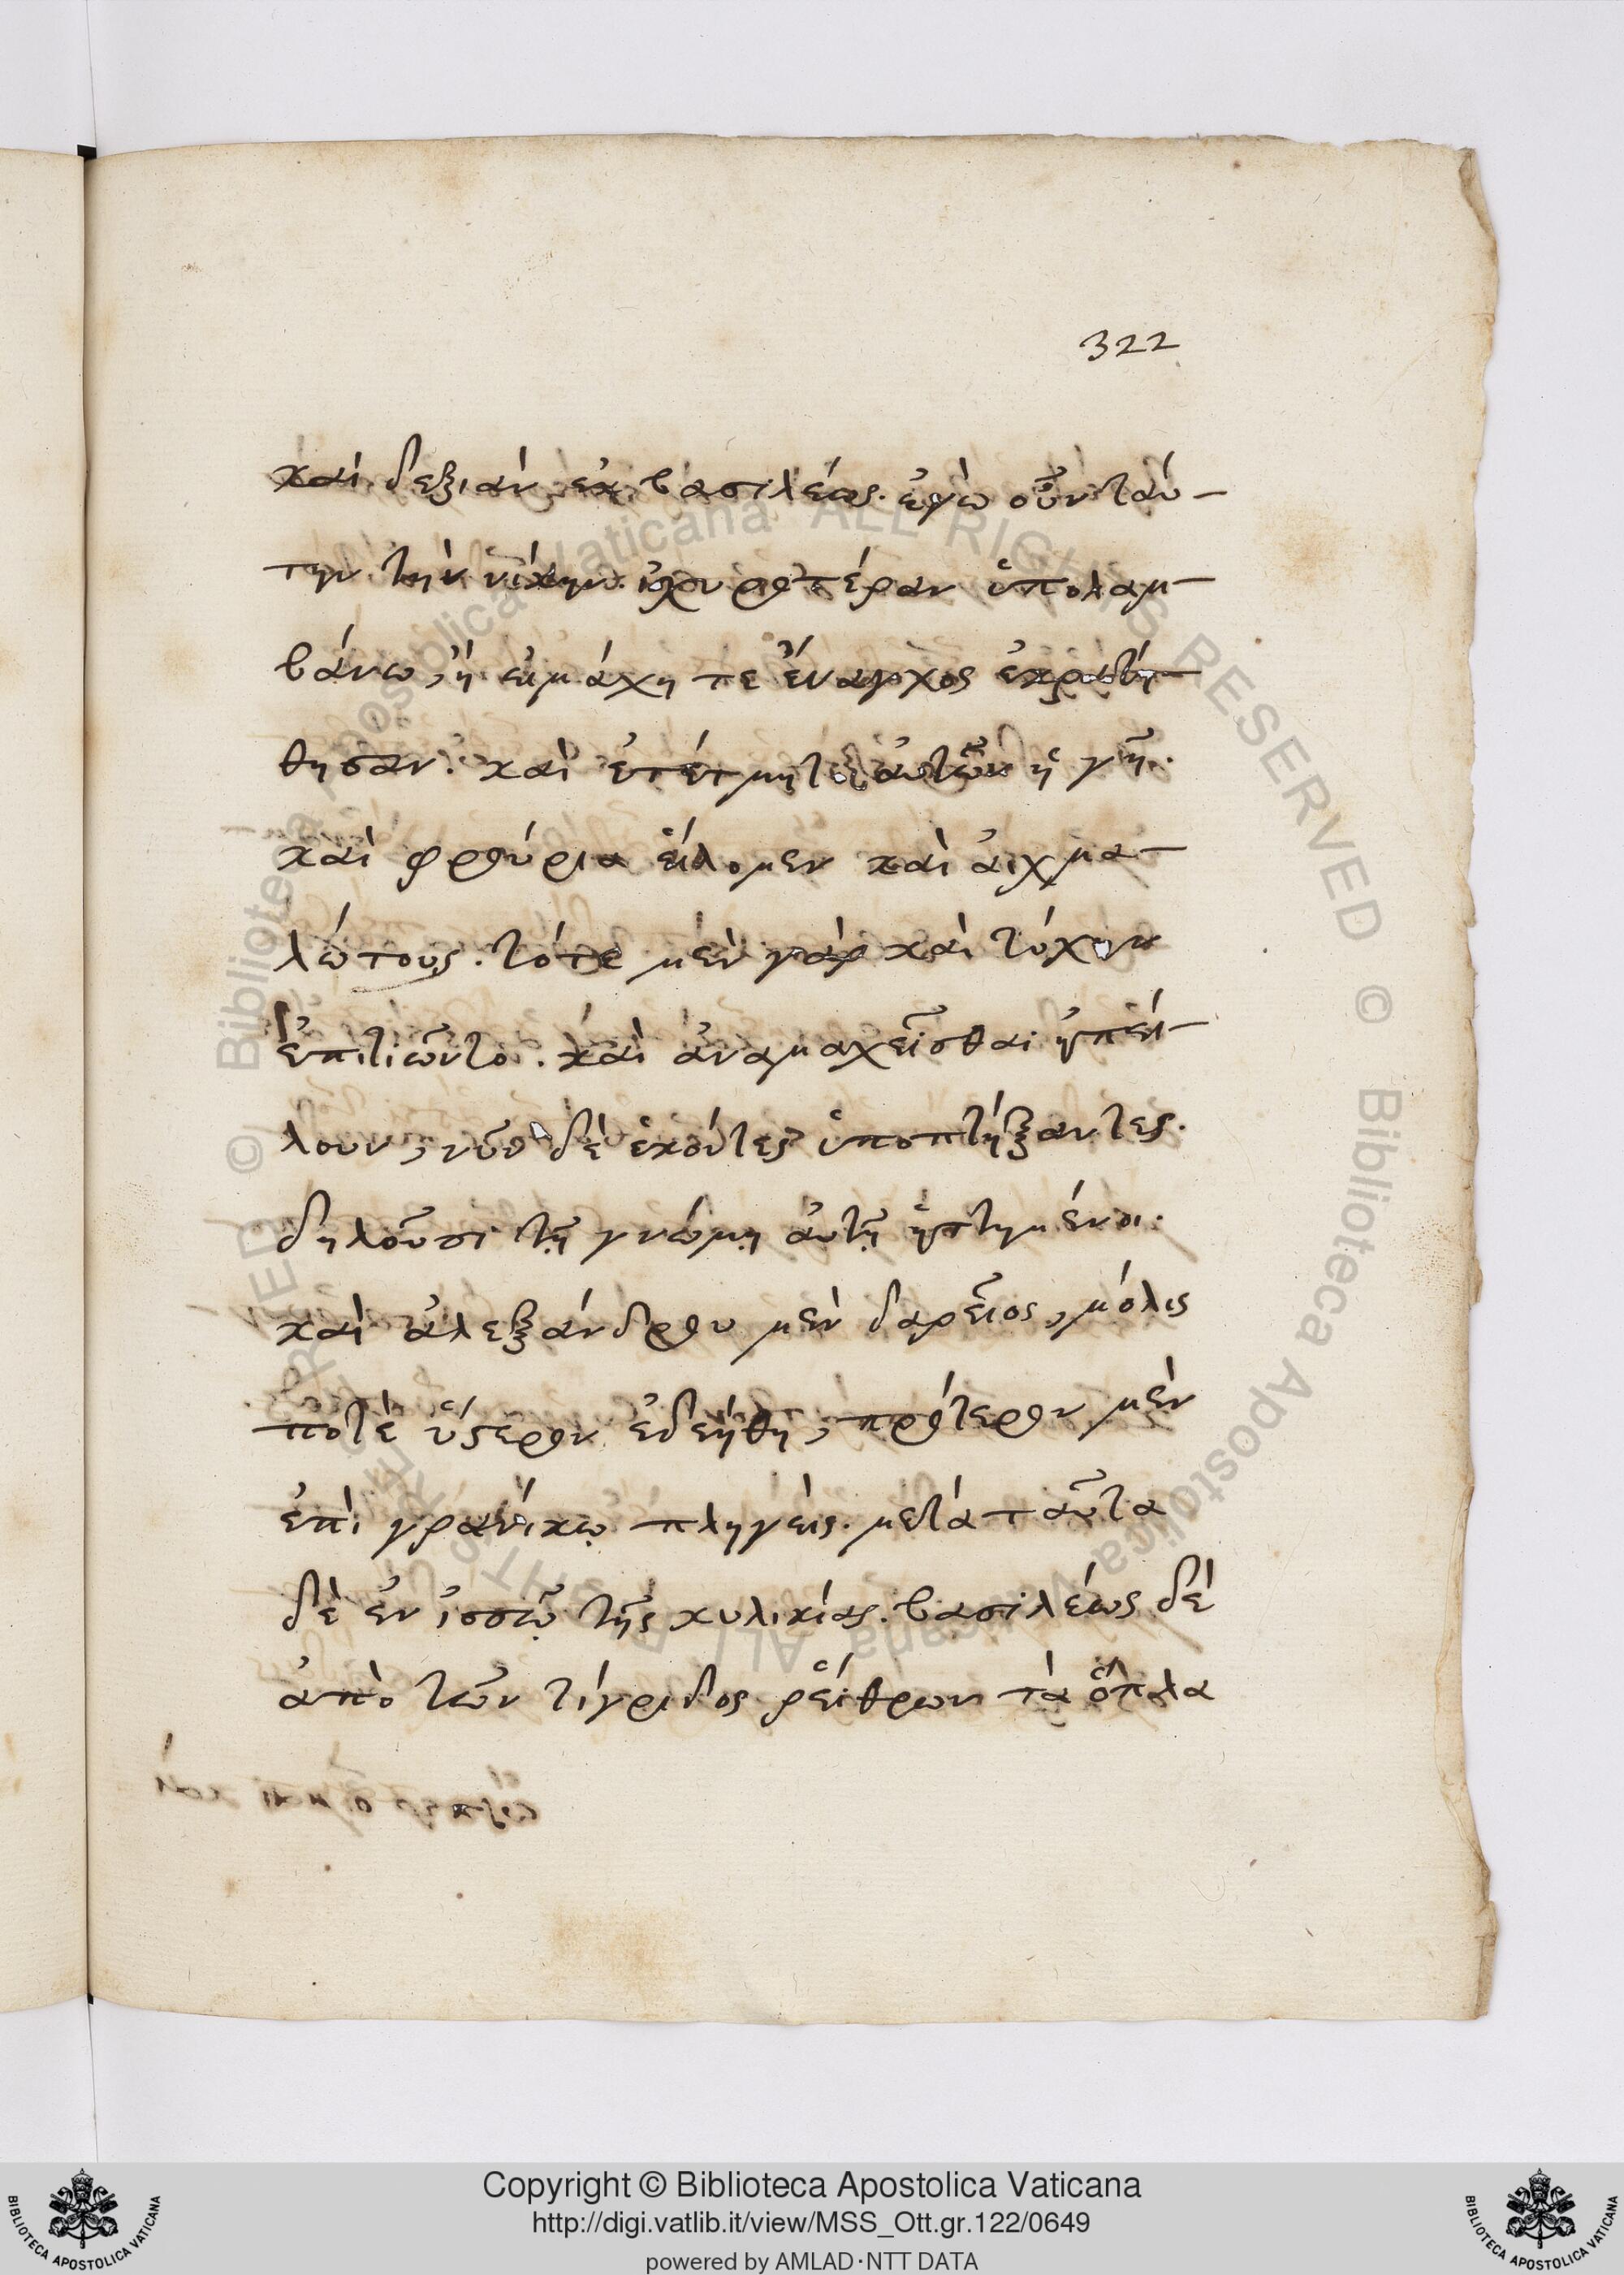 322
καὶ δεξιὰν ἐκ βασιλέως. ἐγὼ οὖν ταύ-
την τὴν νίκην ἰσχυροτέραν ὑπολαμ-
βάνω, ἢ εἰ μάχῃ τε ἔναγχος ἐκρατή-
θησαν. καὶ ἐτέτμητο αὐτῶν ἡ γῆ.
καὶ φρούρια εἵλομεν καὶ αἰχμα-
λώτους. τότε μὲν γὰρ καὶ τύχην
ἐπιτιῶντο. καὶ ἀναμαχεῖσθαι ἠπεί-
λουν, νῦν δὲ ἑκόντες ὑποπτήξαντες.
δηλοῦσι τῇ γνώμῃ αὐτῇ ἡττημένοι.
καὶ ἀλεξάνδρου μὲν δαρεῖος, μόλις
ποτὲ ὕστερον ἐδεήθη, πρότερον μὲν
ἐπὶ γρανίκῳ πληγεὶς. μετὰ ταῦτα
δὲ ἐν ἰσσῷ τῆς κυλικίας. βασιλέως δὲ
ἀπὸ τῶν τίγριδος ῥείθρων τὰ ὅπλα
Copyright © Biblioteca Apostolica Vaticana
http://digi.vatlib.it/view/MSS_Ott.gr.122/0649
powered by AMLAD·NTT DATA
BIBLIOTECA APOSTOLICA VATICANA
BIBLIOTECA APOSTOLICA VATICANA